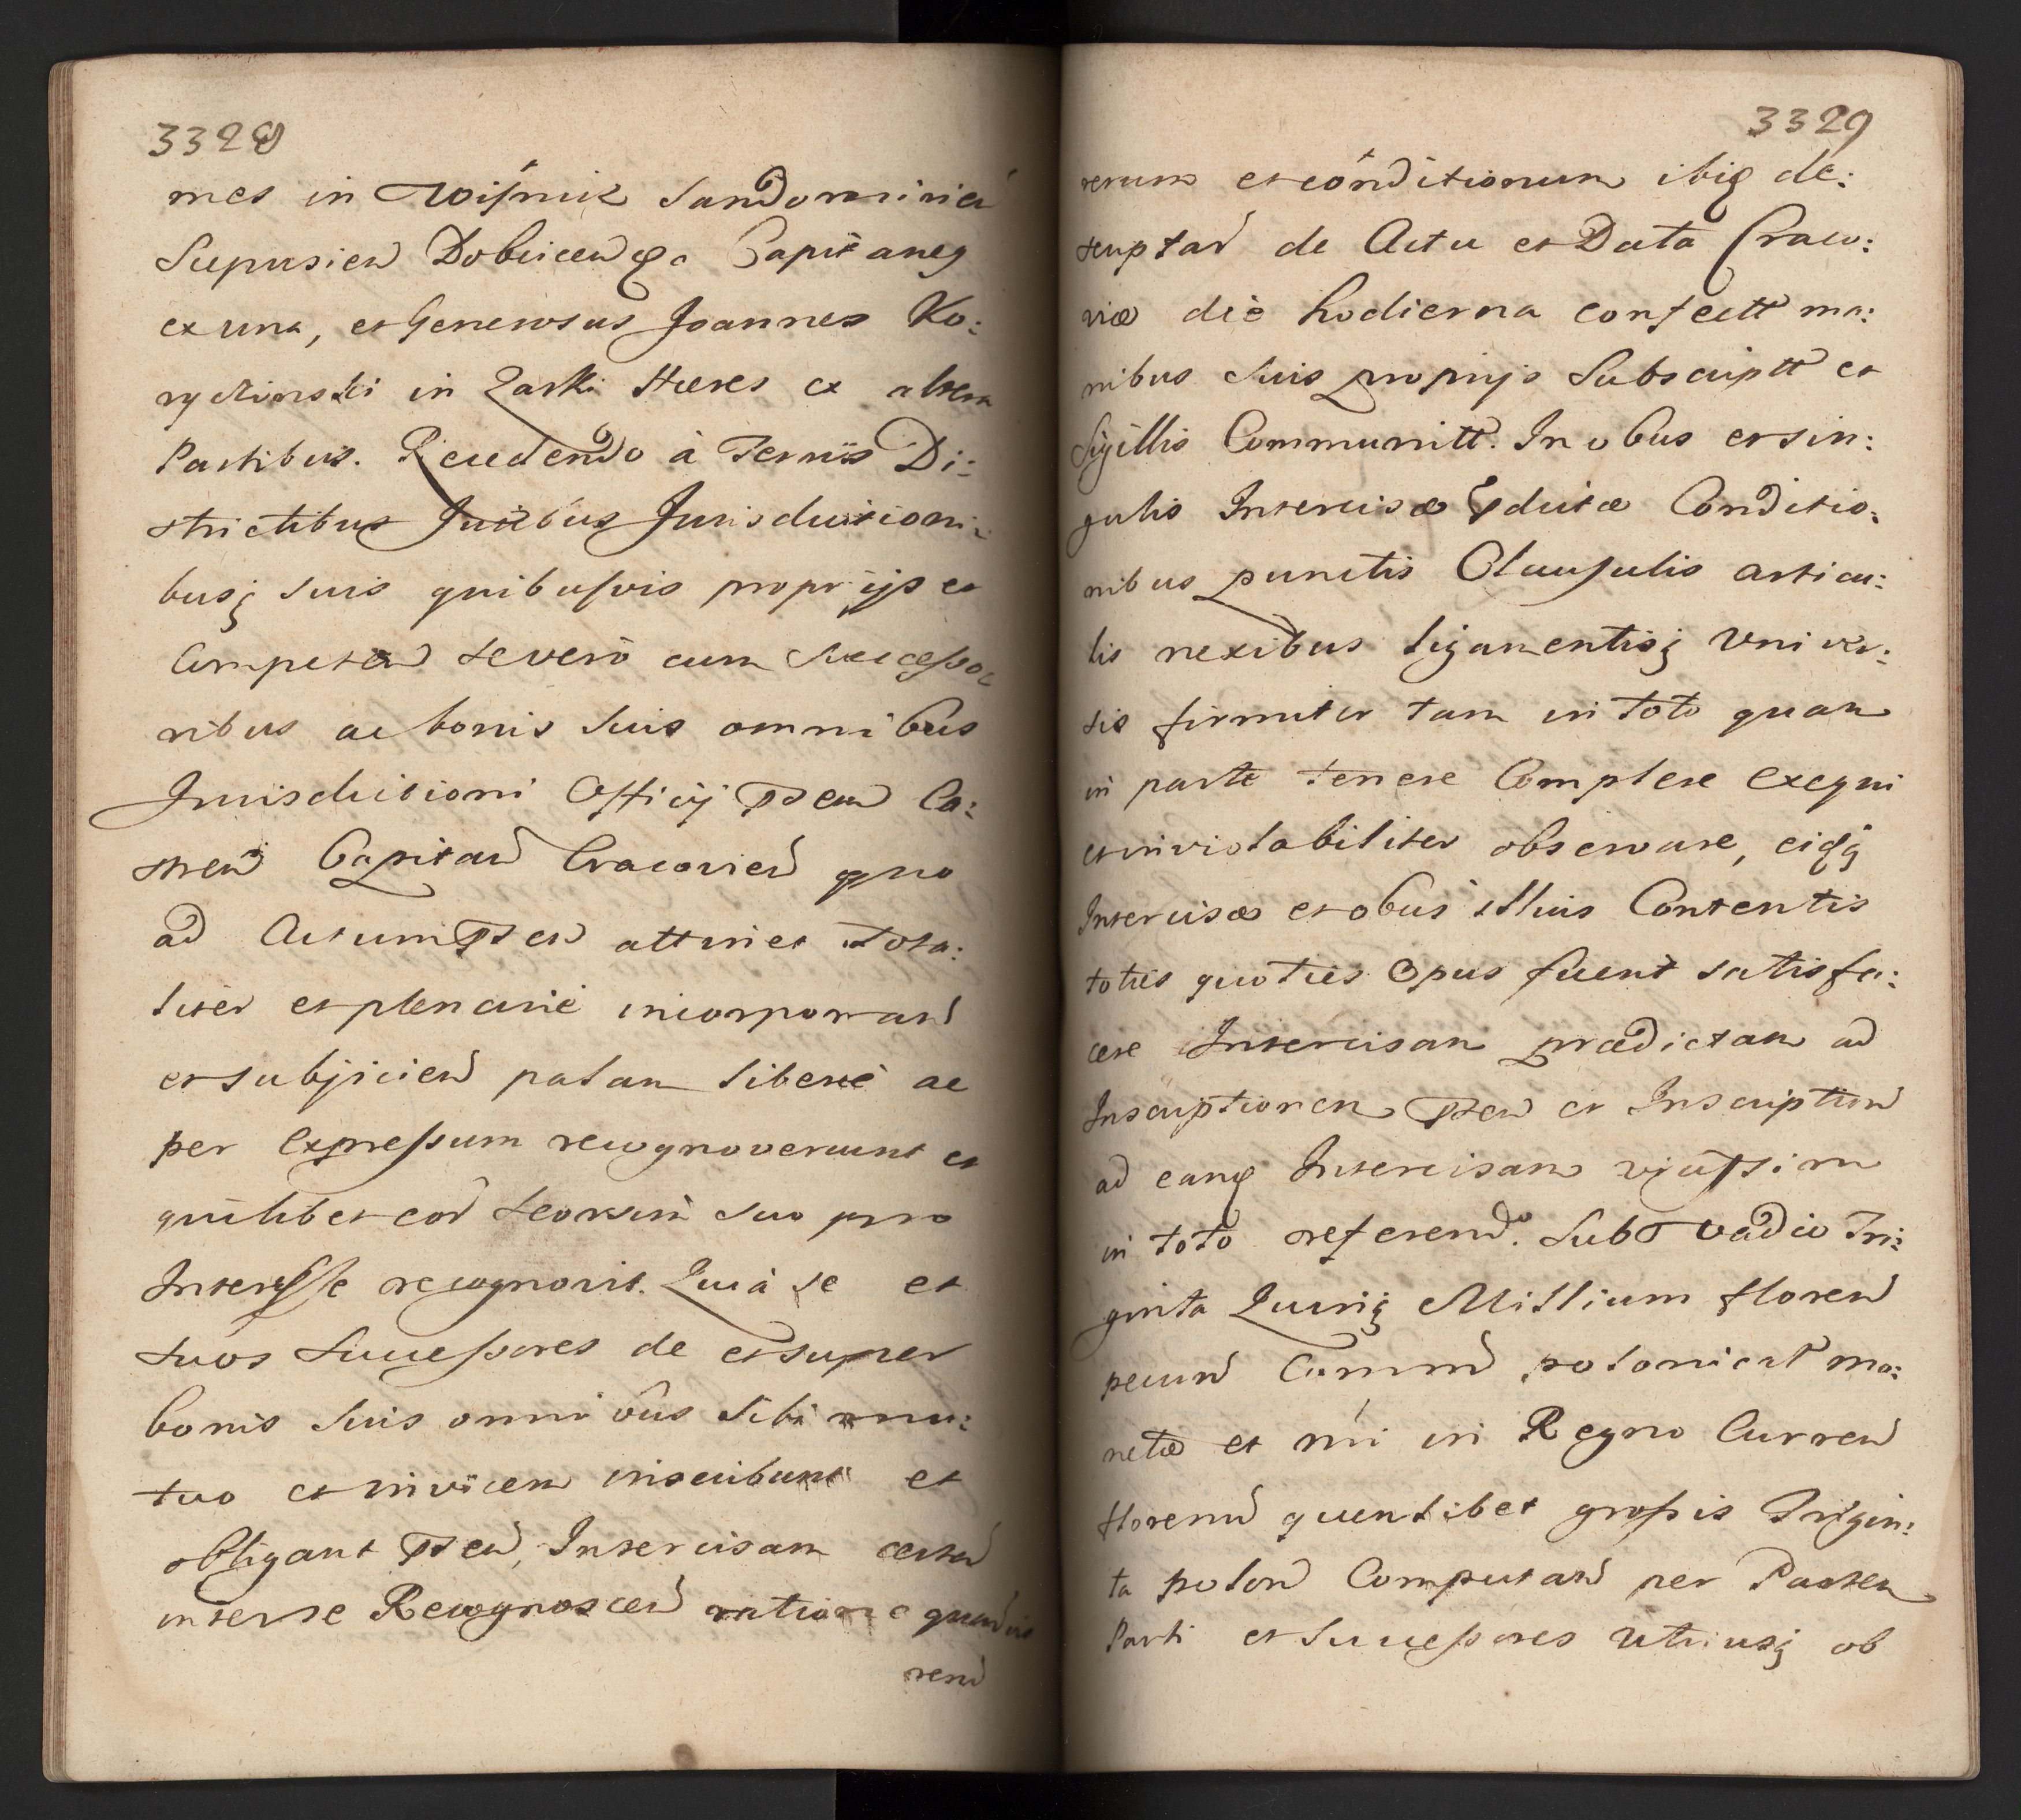 3328
mes in Wiśnik Sandomirien
Scepusien Dobcicen &c Capitaneg
ex una, et Generosus Joannes Ko:
ryciński in Zarki Hæres ex altera
Partibus. Recedendo à Terris Di:
strictibus Juribus Jurisdictioni:
busq suis quibusvis proprijs et
Competen se vero cum Successo:
ribus ac bonis suis omnibus
Jurisdictioni Officij pnten Ca:
stren Capitan Cracovien quo
ad Actum pnten attinet tota:
liter et plenarié incorporan
et subjicien palam liberé ac
per Expressum recognoverunt et
quilibet eor seorsim suo pro
Interesse recognovit. Quia se et
suos Successores de et super
bonis suis omnibus sibi mu:
tuo et invicem inscribunt et
obligant pnten, Intercisam certen
inter se Recognoscen ratione
rend
3329
rerum et conditionum ibig de:
scriptar de Actu et Data Craco:
viæ die hodierna confectt ma:
nibus suis proprijs Subscriptt et
Sigillis Communitt. In obus et sin:
gulis Intercisæ Eductæ Conditio:
nibus punctis Clausulis articu:
lis nexibus ligamentisq Univer:
sis firmiter tam in toto quam
in parte tenere Complere Exequi
et inviolabiliter observare, eigq
Intercisæ et obus illius Contentis
toties quoties Opus fuerit satisfa:
cere Intercisam prædictam ad
Inscriptionem pnten et Inscription
ad eang Intercisam vicissim
in toto referendo. Sub vadio Tri:
ginta Quinq Millium floren
pecun Comm polonicał mo:
netæ et nri in Regno Curren
florenu quemlibet grossis Trigin:
ta polon Computan per Partem
Parti et Successores Utriusq ob